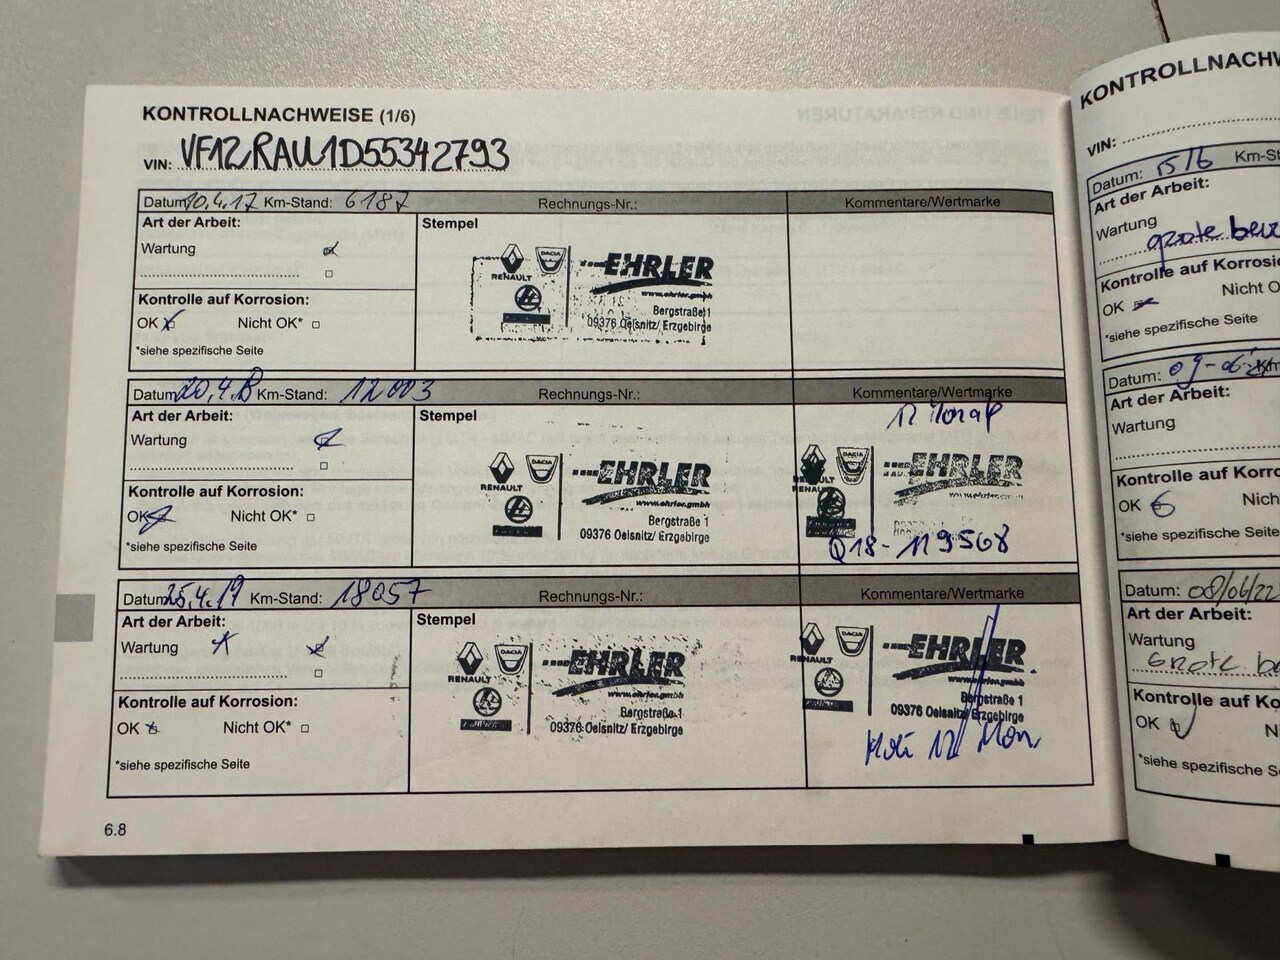 KONTROLLNACHWEISE (1/6)
VIN: VF12RAU1D55342793
Datum 10.4.17 Km-Stand: 6187 Rechnungs-Nr.: Kommentare/Wertmarke
Art der Arbeit: Stempel
Wartung
RENAULT DACIA EHRLER
www.ehrler.gmbh
Kontrolle auf Korrosion:
Bergstraße 1
OK Nicht OK*
09376 Oelsnitz/ Erzgebirge
*siehe spezifische Seite
Datum 20.4.18 Km-Stand: 12003 Rechnungs-Nr.: Kommentare/Wertmarke
Art der Arbeit: Stempel
12
Wartung
RENAULT DACIA EHRLER
www.ehrler.gmbh
RENAULT DACIA EHRLER
Kontrolle auf Korrosion:
Bergstraße 1
OK Nicht OK*
09376 Oelsnitz/ Erzgebirge
Q18-119508
*siehe spezifische Seite
Datum 25.4.19 Km-Stand: 18057 Rechnungs-Nr.: Kommentare/Wertmarke
Art der Arbeit: Stempel
Wartung
RENAULT DACIA EHRLER
www.ehrler.gmbh
Bergstraße 1
09376 Oelsnitz/ Erzgebirge
RENAULT DACIA EHRLER
www.ehrler.gmbh
Bergstraße 1
09376 Oelsnitz/ Erzgebirge
Mobi 12 Mon.
Kontrolle auf Korrosion:
OK Nicht OK*
*siehe spezifische Seite
6.8
KONTROLLNACHW
VIN:
Datum: 15/6 Km-St
Art der Arbeit:
Wartung
grote beu
Kontrolle auf Korrosio
OK Nicht O
*siehe spezifische Seite
Datum: 09-06- Km
Art der Arbeit:
Wartung
Kontrolle auf Korro
OK Nich
*siehe spezifische Seite
Datum: 08/06/22
Art der Arbeit:
Wartung
Grote be
Kontrolle auf Ko
OK N
*siehe spezifische S